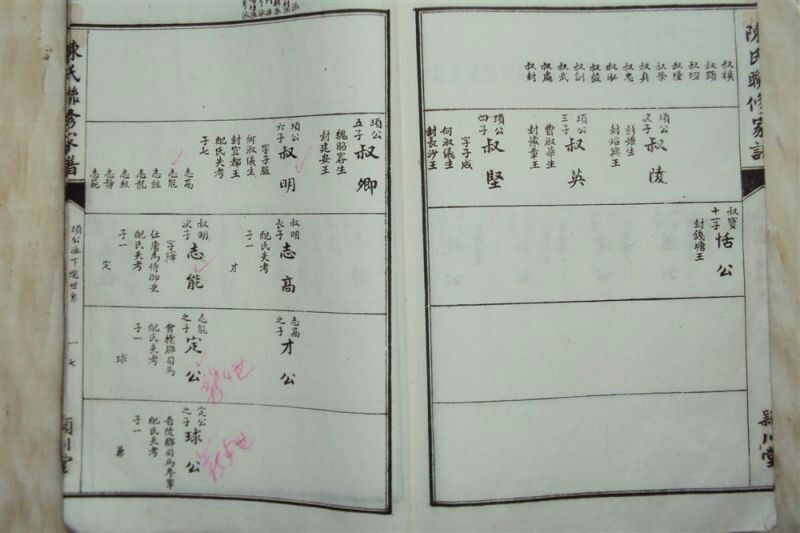 陳氏聯修家譜
潁川堂
叔謨
叔顯
叔坦
叔隆
叔榮
叔真
叔忠
叔泓
叔儼
叔訓
叔武
叔處
叔封
項公
次子
叔陵
彭姬生
封始興王
項公
三子
叔英
曹淑華生
封豫章王
項公
四子
叔堅
字子成
何淑儀生
封長沙王
叔寶
十一子
恬公
封錢塘王
五子
叔卿
魏昭容生
封建安王
項公
六子
叔明
字子服
何淑儀生
封宜都王
配氏失考
子七
志高
志能
志鉉
志龍
志鉉
志靜
志範
叔明
長子
志高
配氏失考
子一
才
叔明
次子
志能
仕唐為侍御史
配氏失考
子一
定
志高
之子
才公
志能
之子
定公
會稽郡司馬
配氏失考
子一
球
第4世
定公
之子
球公
晉陵郡司馬參軍
配氏失考
子一
兼
第5世
陳氏聯修家譜
項公派下總世系
一七
潁川堂